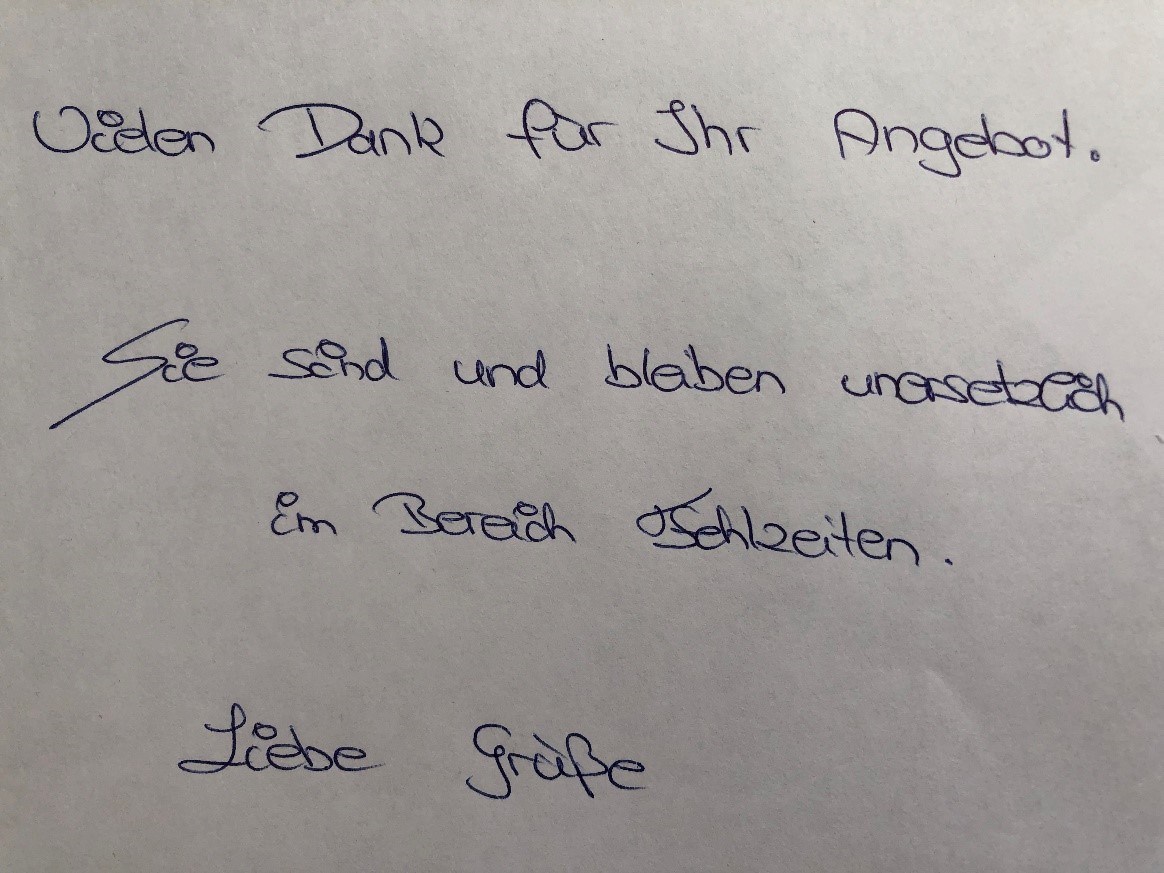 Vielen Dank für Ihr Angebot.
Sie sind und bleiben unersetzlich
im Bereich Fehlzeiten.
Liebe Grüße